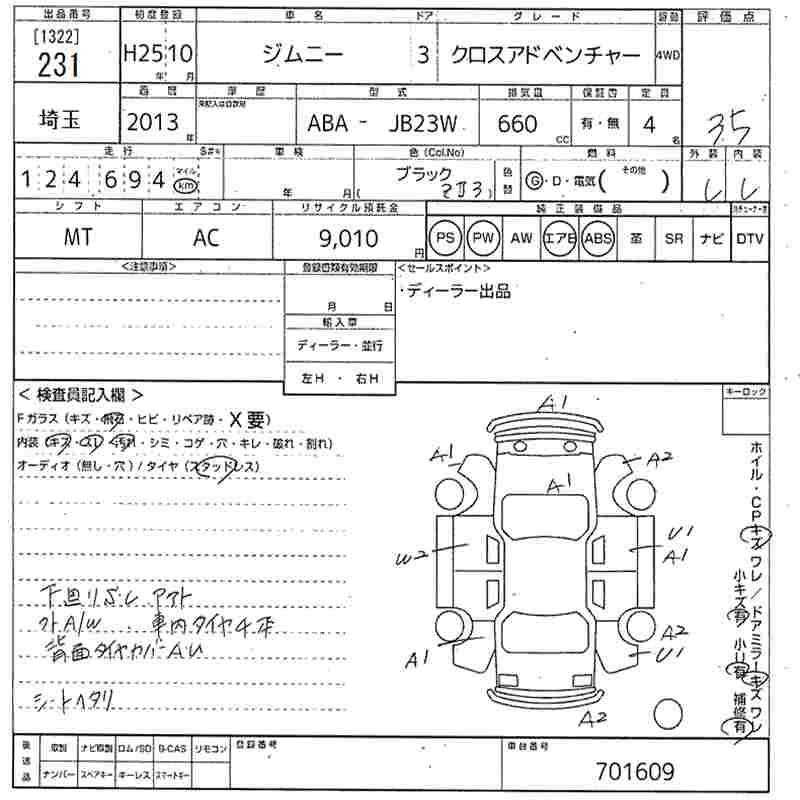 出品番号 初度登録 車名 ドア グレード 駆動 評価点
[1322]
231 H25 10 ジムニー 3 クロスアドベンチャー 4WD
年 月
西暦 車歴 型式 排気量 保証書 定員
未記入は自家用
埼玉 2013年 ABA - JB23W 660cc 有・無 4名 3.5
走行 S#* 車検 色(Col.No) 燃料 外装 内装
124,694 マイル km 年 月 ブラック (ZJ3) 色替 G・D・電気( その他 )
シフト エアコン リサイクル預託金 純正装備品
MT AC 9,010円 PS PW AW エアB ABS 革 SR ナビ DTV
<注意事項> 登録書類有効期限 <セールスポイント>
・ディーラー出品
月 日
輸入車
ディーラー・並行
左H ・ 右H
<検査員記入欄> キーロック
Fガラス(キズ・飛石・ヒビ・リペア跡・X要)
内装(キズ・スレ・汚れ・シミ・コゲ・穴・キレ・破れ・割れ)
オーディオ(無し・穴)/タイヤ(スタッドレス)
A1
A1 A2
A1
U1
W2 A1
A2
A1 U1
A2
ホイル・CPキズ ワレ/ドアミラーキズ ワレ
小キズ有 小U有 補修有
下廻りSレ アスト
外A/W . 車内タイヤ4本
背面タイヤカバーAU
シートヘタリ
後送品 取説 ナビ取説 ロム/SD B-CAS リモコン 登録番号 車台番号
ナンバー スペアキー キーレス スマートキー
701609